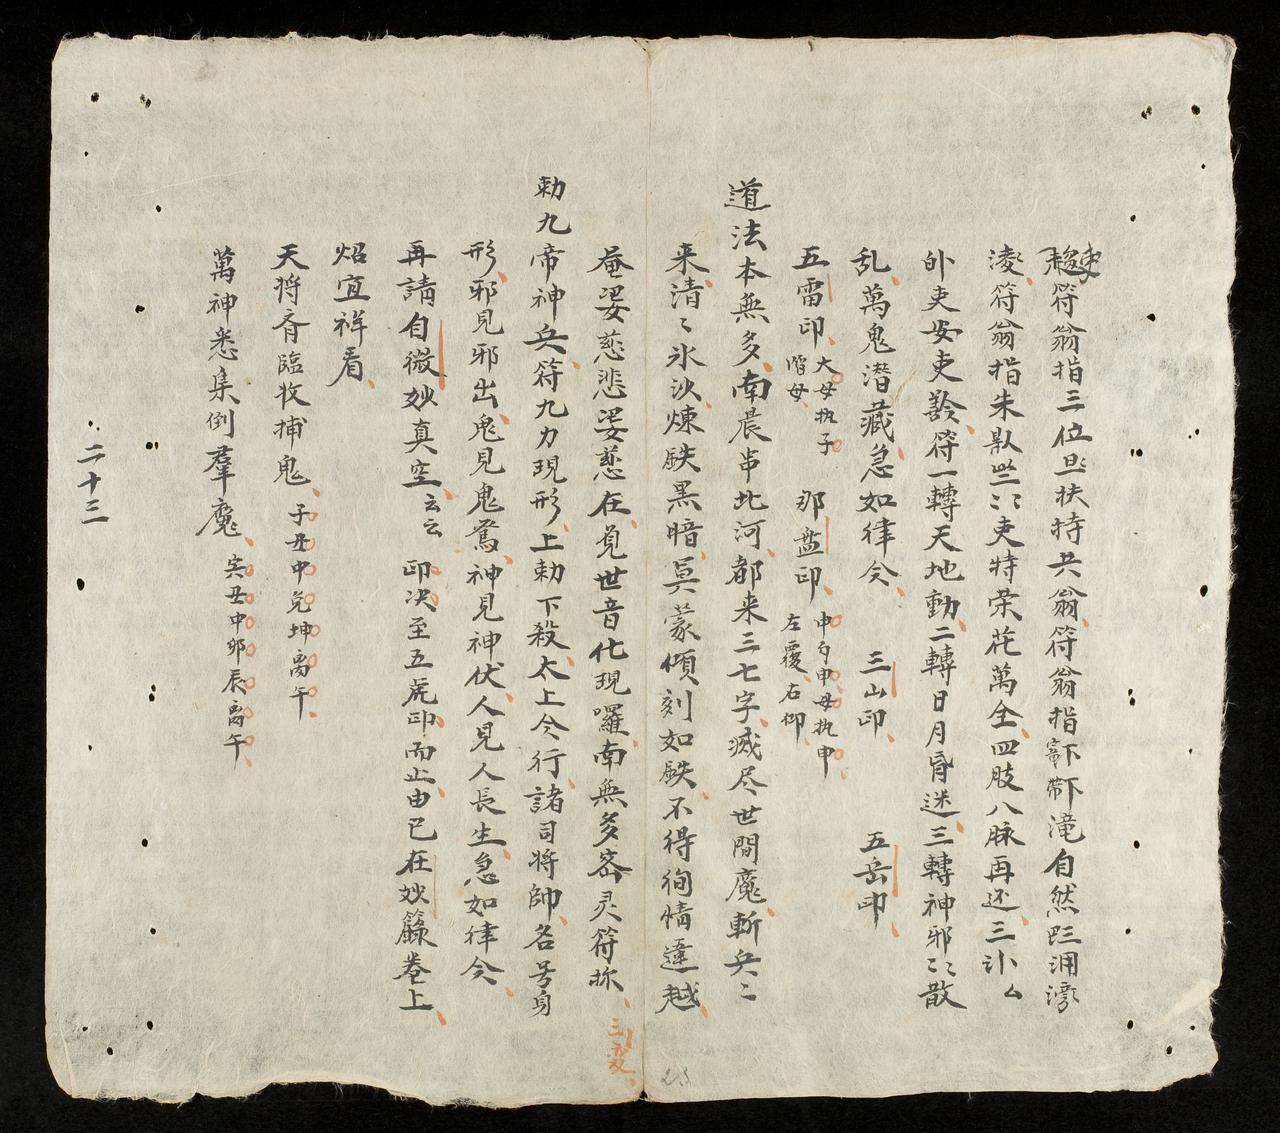 符翁指三位旦扶持共翁符翁指下滝自然
符翁指朱吏特荣花萬全四肢八脉再还三
吏安吏符一轉天地動二轉日月昏迷三轉神邪〻散
乱萬鬼潜藏急如律令 三山印 五岳印
五雷印 大母执子 階母 那盘印 中勺申母执申 左覆右仰
道法本無多南晨串北河都来三七字滅尽世間魔斬兵〻
来清〻氷洪煉䥫黒暗冥蒙傾刻如䥫不得徇情違越
菴娑慈悲娑慈在覔世音化現囉南無多宻灵符抝 三变
勅九帝神兵符九力現形上勅下殺太上令行諸司将帥名号身
形邪見邪出鬼見鬼驚神見神伏人見人長生急如律令
再請自微妙真空云云 印决至五虎印而止由已在妙籙卷上
炤宜祥看
天将齐臨牧捕鬼 子丑中兊坤离午
萬神悉集倒羣魔 亥丑中卯辰离午
二十三